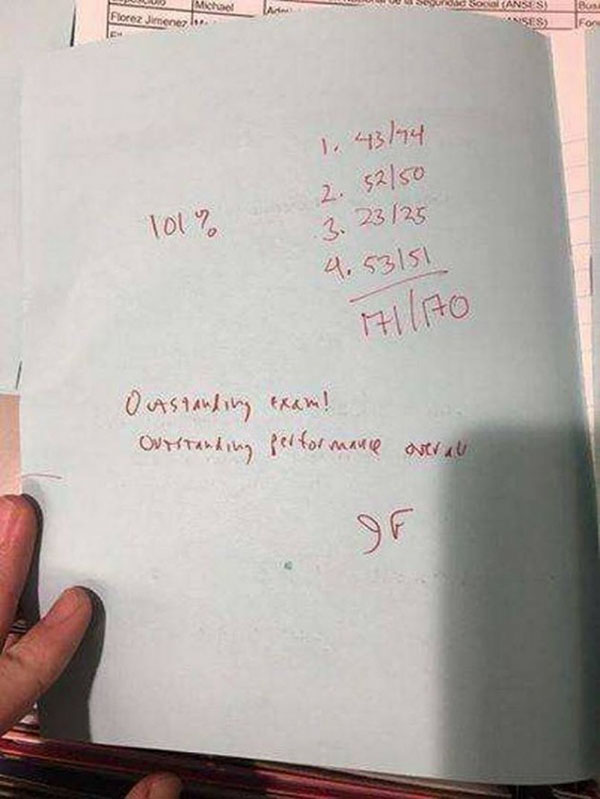 Michael
de la Seguridad Social (ANSES)
Florez Jimenez
(ANSES)
1. 43/44
2. 52/50
101%
3. 23/25
4. 53/51
171/170
Outstanding exam!
Outstanding performance overall
JF